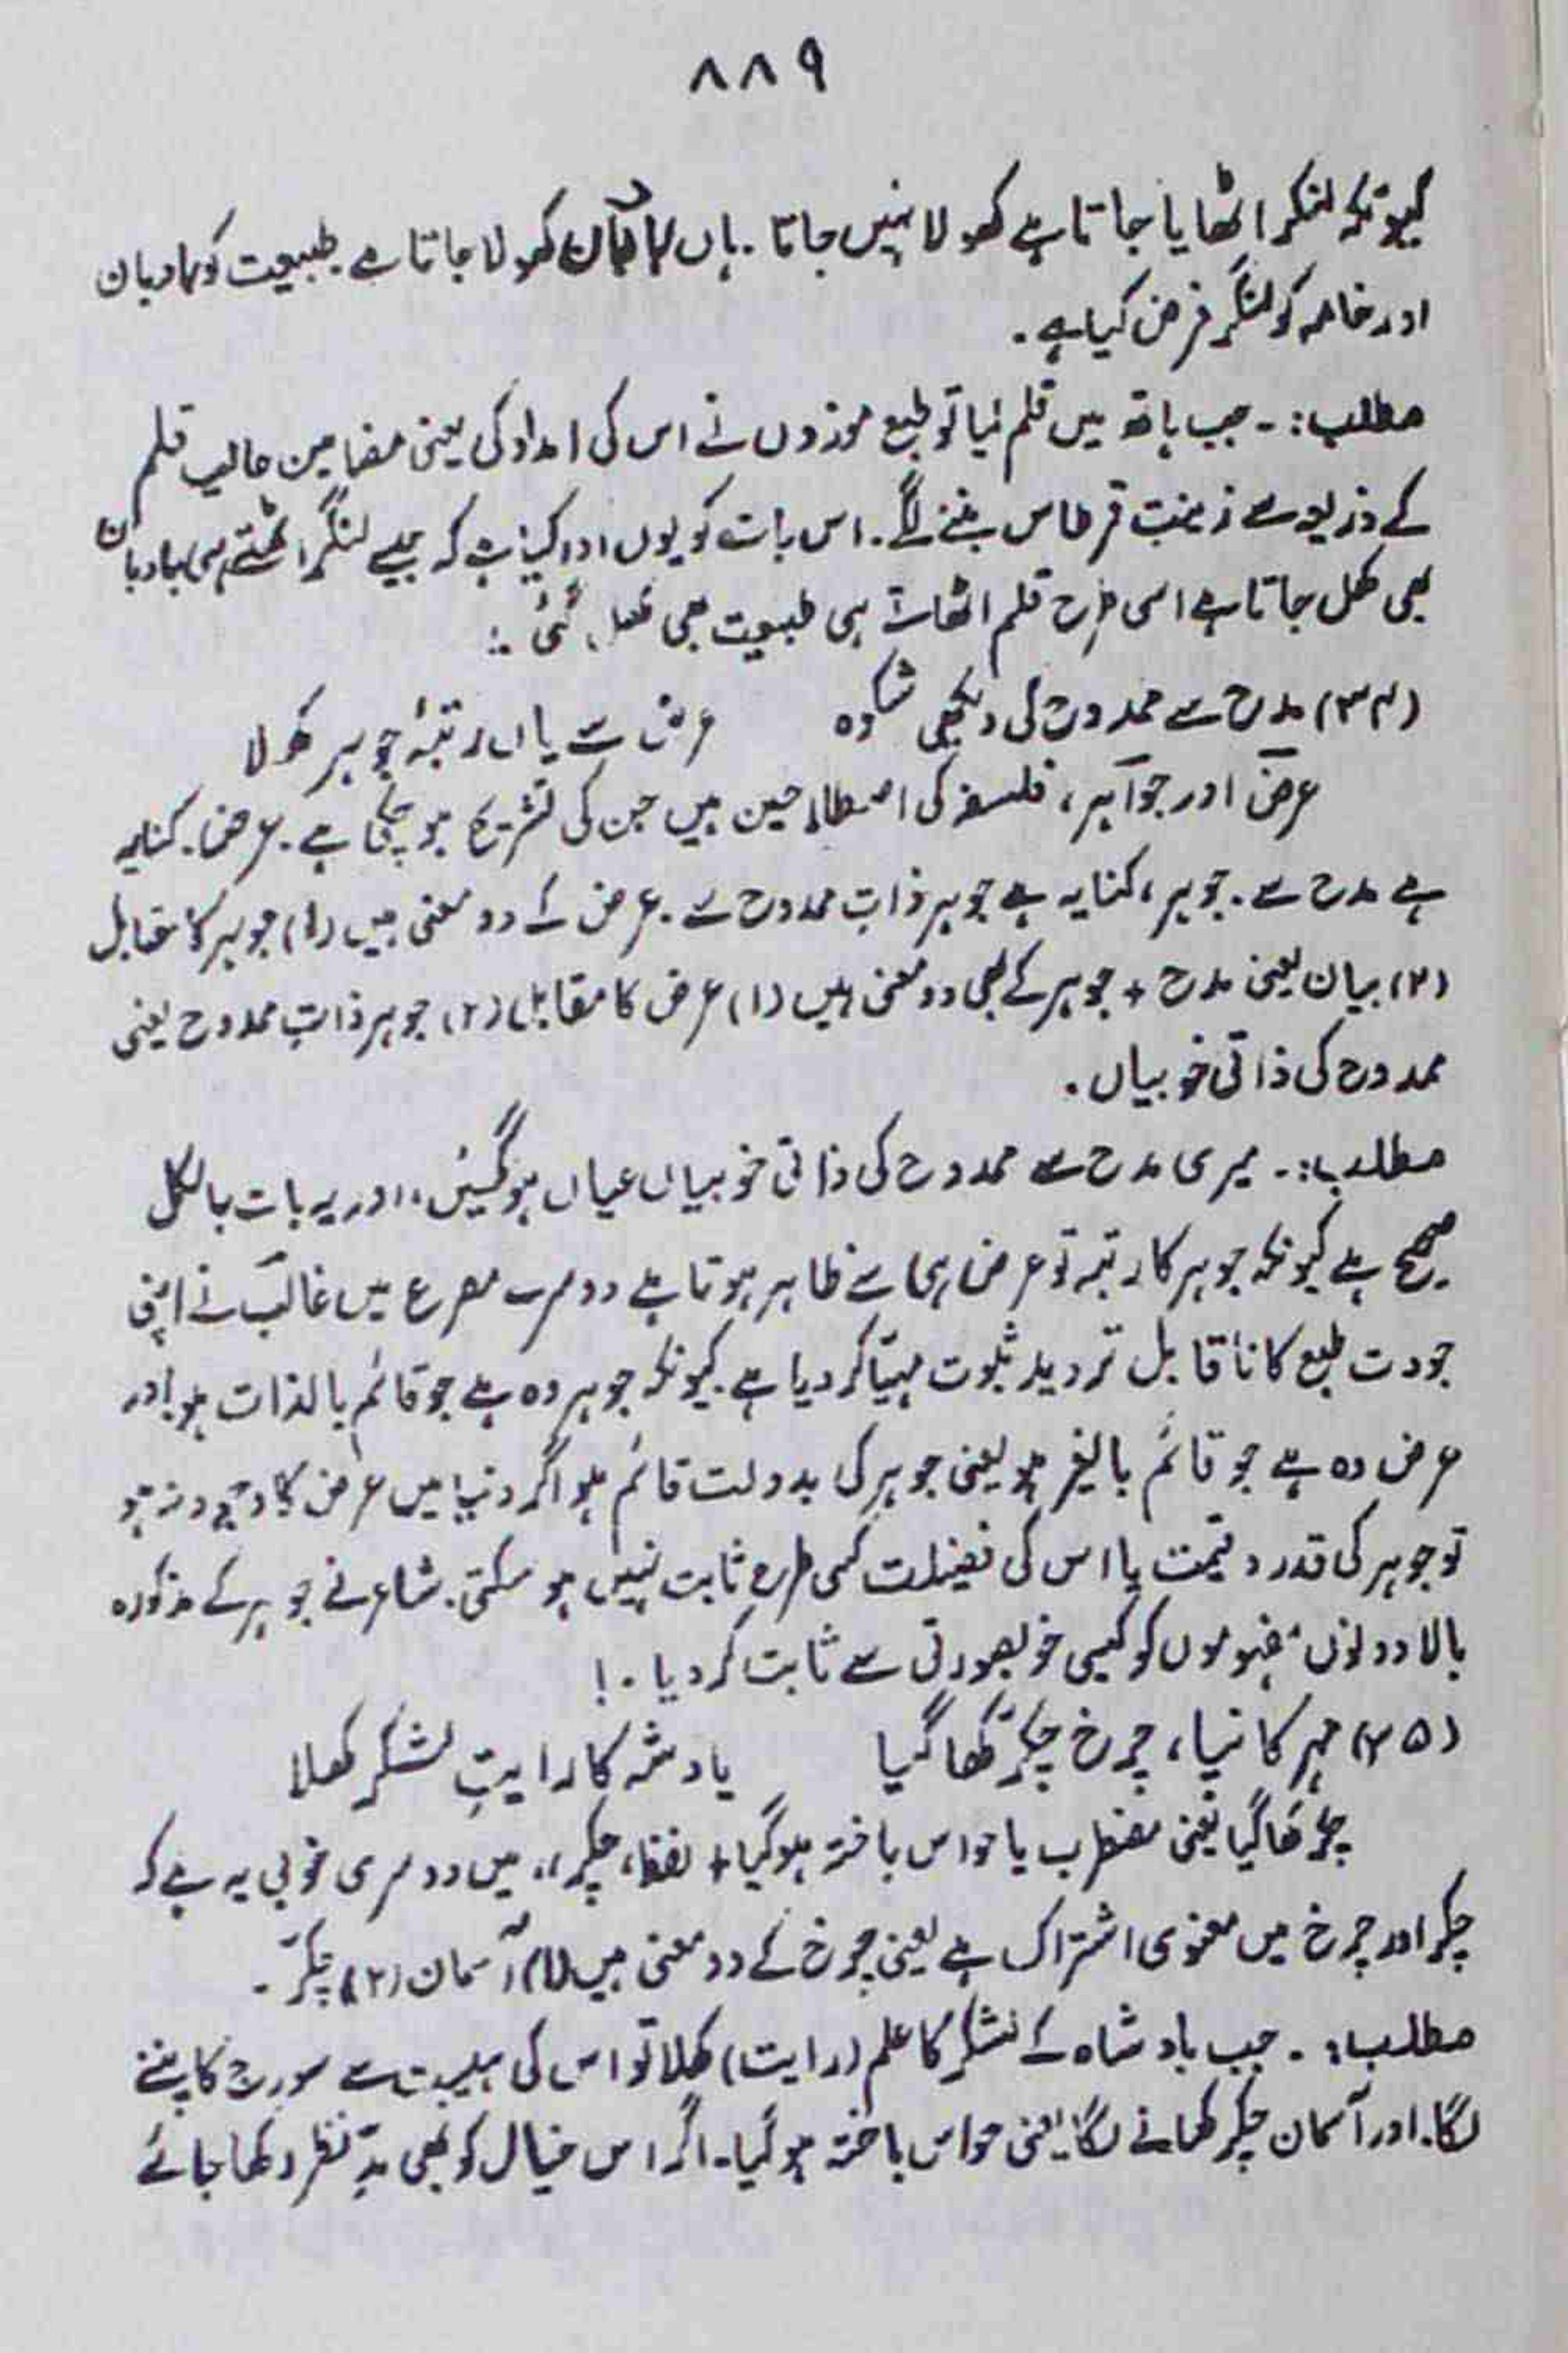 ۸۸۹
کیونکہ لنگر اٹھایا جاتا ہے کھولا نہیں جاتا۔ ہاں بادبان کھولا جاتا ہے۔ طبیعت کو بادبان
اور خامہ کو لنگر فرض کیا ہے۔
مطلب:۔ جب ہاتھ میں قلم لیا تو طبع موزوں نے اس کی امداد کی یعنی مضامین عالیہ قلم
کے ذریعہ سے زینت قرطاس بننے لگے۔ اس بات کو یوں ادا کیا ہے کہ جیسے لنگر اٹھتے ہی بادبان
بھی کھل جاتا ہے اسی طرح قلم اٹھاتے ہی طبیعت بھی کھل گئی :
(۲۴) مدح سے ممدوح کی دیکھی شکوہ عرض سے یاں رتبۂ جوہر کھلا
عرض اور جواہر، فلسفہ کی اصطلاحیں ہیں جن کی تشریح ہو چکی ہے۔ عرض، کنایہ
ہے مدح سے۔ جوہر، کنایہ ہے جوہر ذاتِ ممدوح سے۔ عرض کے دو معنی ہیں (۱) جوہر کا مقابل
(۲) بیان یعنی مدح + جوہر کے بھی دو معنی ہیں (۱) عرض کا مقابل (۲) جوہر ذاتِ ممدوح یعنی
ممدوح کی ذاتی خوبیاں۔
مطلب:۔ میری مدح سے ممدوح کی ذاتی خوبیاں عیاں ہو گئیں، اور یہ بات بالکل
صحیح ہے کیونکہ جوہر کا رتبہ تو عرض ہی سے ظاہر ہوتا ہے دوسرے مصرع میں غالبؔ نے اپنی
جودت طبع کا ناقابل تردید ثبوت مہیّا کر دیا ہے۔ کیونکہ جوہر وہ ہے جو قائم بالذات ہو اور
عرض وہ ہے جو قائم بالغیر ہو یعنی جوہر کی بدولت قائم ہو اگر دنیا میں عرض کا وجود نہ ہو
تو جوہر کی قدر و قیمت یا اس کی فضیلت کسی طرح ثابت نہیں ہو سکتی۔ شاعر نے جوہر کے مذکورہ
بالا دونوں مفہوموں کو کیسی خوبصورتی سے ثابت کر دیا۔!
(۲۵) مہر کانپا، چرخ چکّر کھا گیا بادشہ کا رایتِ لشکر کھلا
چکر کھا گیا یعنی مضطرب یا حواس باختہ ہو گیا + لفظ، چکر،، میں دوسری خوبی یہ ہے کہ
چکر اور چرخ میں معنوی اشتراک ہے یعنی چرخ کے دو معنی ہیں (۱) آسمان (۲) چکّر۔
مطلب:۔ جب بادشاہ کے لشکر کا علم (رایت) کھلا تو اس کی ہیبت سے سورج کانپنے
لگا۔ اور آسمان چکر کھانے لگا یعنی حواس باختہ ہو گیا۔ اگر اس خیال کو بھی مدِّ نظر رکھا جائے